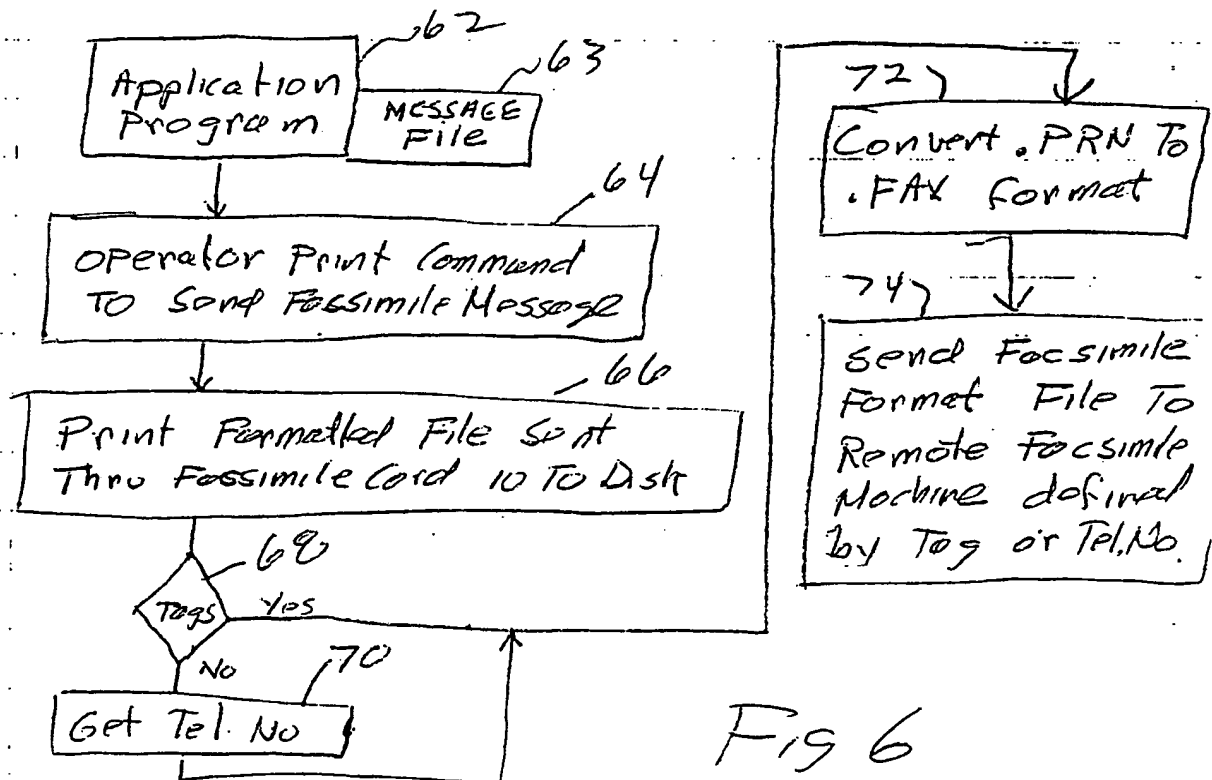 62
Application
Program
63
MESSAGE
File
64
Operator Print Command
To Send Fassimile Message
66
Print Formatted File Sent
Thru Fassimile Card 10 To Disk
68
Tags
Yes
No
70
Get Tel. No
72
Convert .PRN To
.FAX format
74
Send Facsimile
Format File To
Remote Facsimile
Machine defined
by Tag or Tel.No.
Fig 6